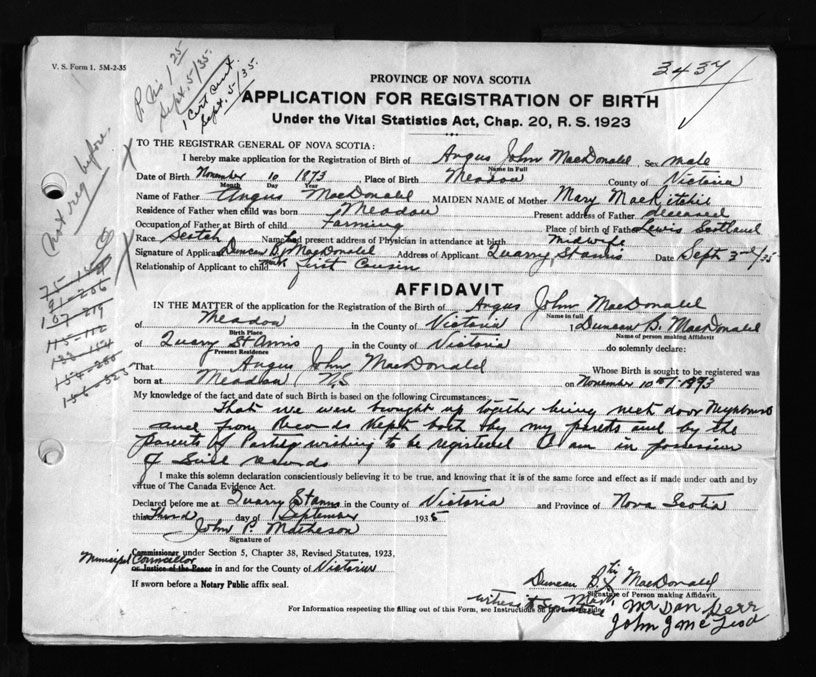 V. S. Form 1. 5M-2-35
P No 1 25
Sept. 5/35.
1 Cert sent.
Sept. 5/35.
3437
PROVINCE OF NOVA SCOTIA
APPLICATION FOR REGISTRATION OF BIRTH
Under the Vital Statistics Act, Chap. 20, R. S. 1923
Not reg before.
TO THE REGISTRAR GENERAL OF NOVA SCOTIA:
I hereby make application for the Registration of Birth of Angus John MacDonald Sex male
Name in Full
Date of Birth November 10 1873 Place of Birth Meadow County of Victoria
Month Day Year
Name of Father Angus MacDonald MAIDEN NAME of Mother Mary MacRitchie
Residence of Father when child was born Meadow Present address of Father deceased
Occupation of Father at Birth of child Farming Place of birth of Father Lewis Scotland
Race Scotch Name and present address of Physician in attendance at birth Midwife
Signature of Applicant Duncan B MacDonald Address of Applicant Quarry, St Anns Date Sept 3rd/35
Relationship of Applicant to child First Cousin
mark
AFFIDAVIT
IN THE MATTER of the application for the Registration of the Birth of Angus John MacDonald
Name in full
of Meadow in the County of Victoria I Duncan B. MacDonald
Birth Place Name of person making Affidavit
of Quarry St Anns in the County of Victoria do solemnly declare:
Present Residence
That Angus John MacDonald Whose Birth is sought to be registered was
born at Meadow NS on November 10 1873
My knowledge of the fact and date of such Birth is based on the following Circumstances:
That we were brought up together being next door Neighbours
and from Records kept both by my parets and by the
parents of Partey wishing to be registered I am in possesion
of Said records
I make this solemn declaration conscientiously believing it to be true, and knowing that it is of the same force and effect as if made under oath and by
virtue of The Canada Evidence Act.
Declared before me at Quarry St Anns in the County of Victoria and Province of Nova Scotia
this Third day of September 1935
John P. Matheson
Signature of
Commissioner under Section 5, Chapter 38, Revised Statutes, 1923,
Municipal Councillor
or Justice of the Peace in and for the County of Victoria
If sworn before a Notary Public affix seal.
Duncan B. X MacDonald
Signature of Person making Affidavit.
Mark
For Information respecting the filling out of this Form, see Instructions on
witness
Mr Dan Kerr
John J McLeod